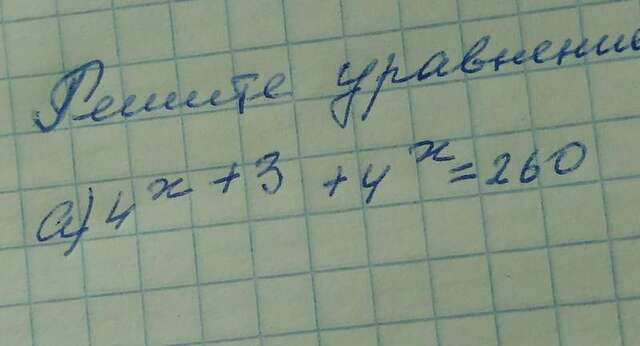 Решите уравнение
а) 4^x+3 + 4^x = 260